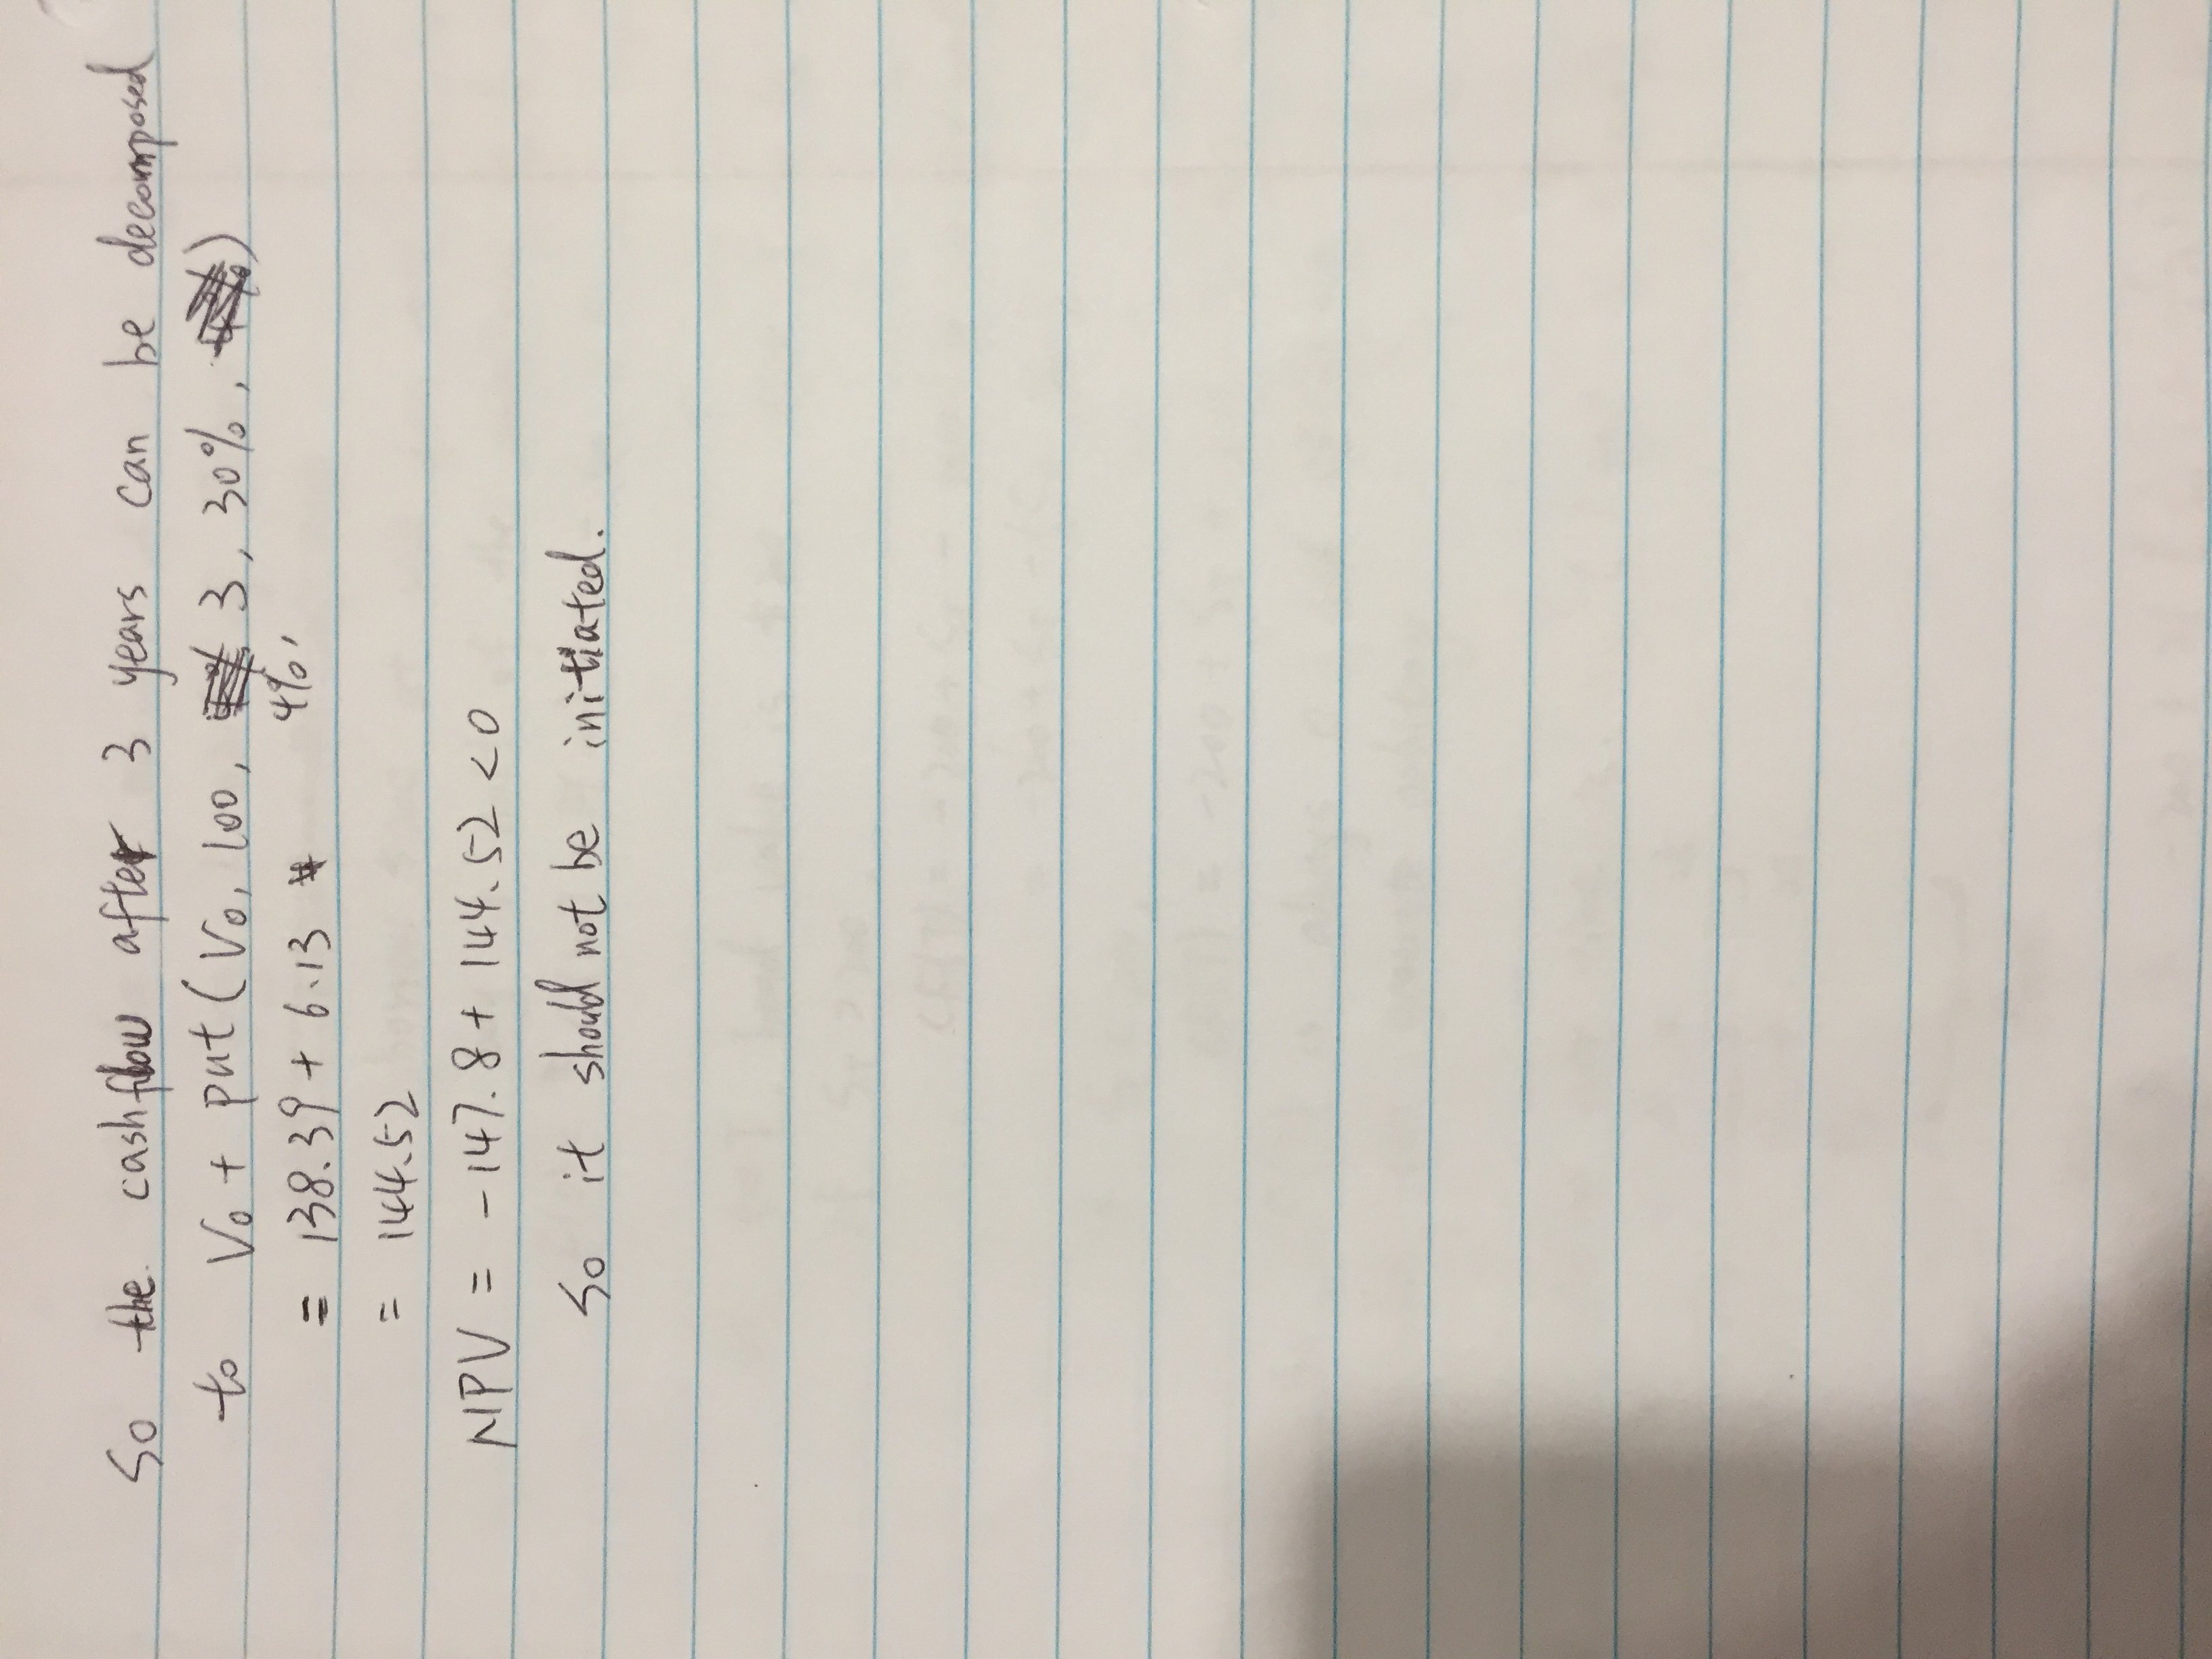 So the cashflow after 3 years can be decomposed
to V₀ + put(V₀, 100, 3, 30%, )
4%,
= 138.39 + 6.13
= 144.52
NPV = -147.8 + 144.52 < 0
So it should not be initiated.